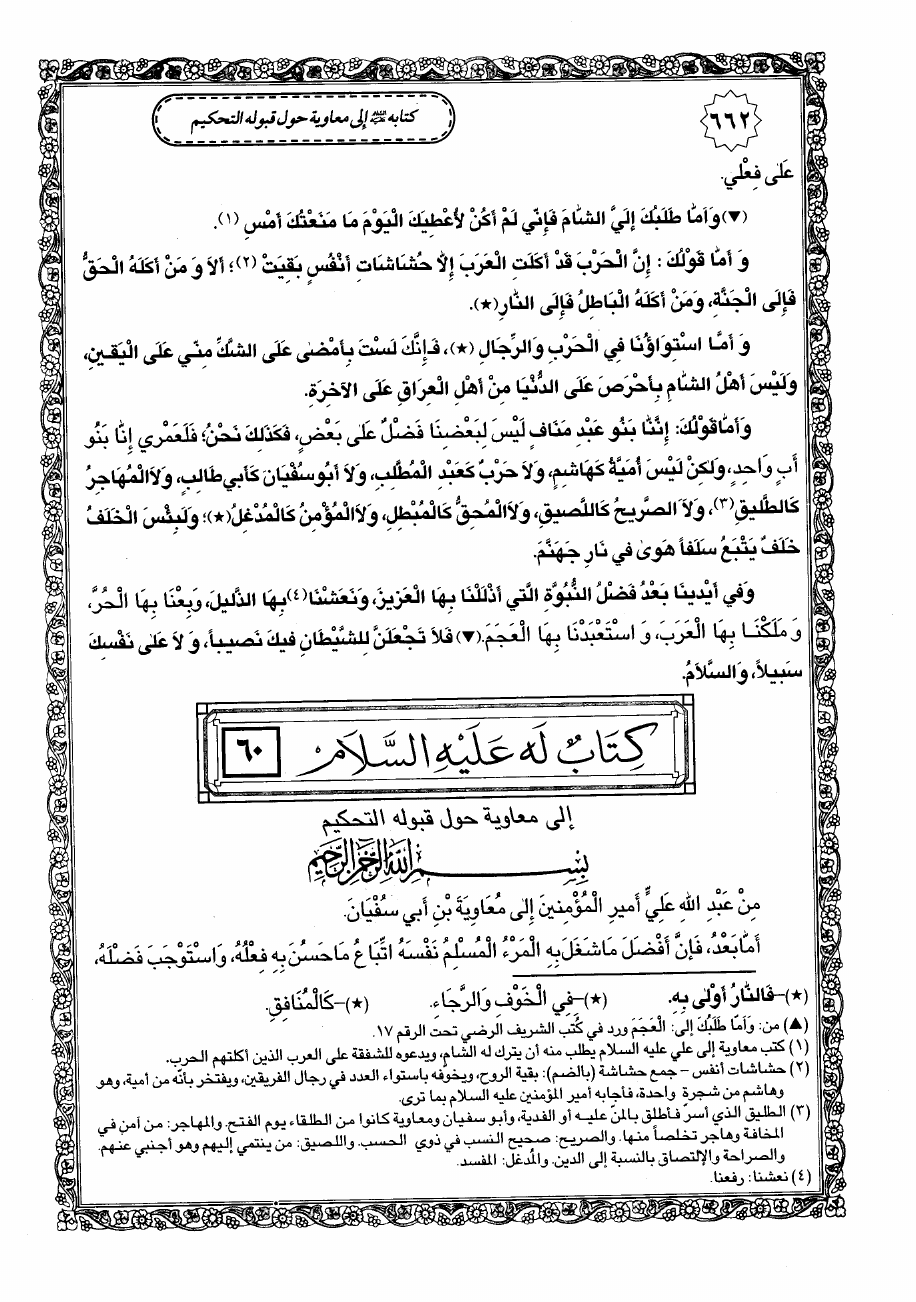 ٦٦٢
كتابه عليه السلام إلى معاوية حول قبوله التحكيم
عَلَى فِعْلي.
(▼) وَأَمَّا طَلَبُكَ إِلَيَّ الشَّامَ فَإِنّي لَمْ أَكُنْ لِأُعْطِيَكَ الْيَوْمَ مَا مَنَعْتُكَ أَمْسِ (١).
وَ أَمَّا قَوْلُكَ : إِنَّ الْحَرْبَ قَدْ أَكَلَتِ الْعَرَبَ إِلاَّ حُشَاشَاتِ أَنْفُسٍ بَقِيَتْ (٢)؛ أَلاَ وَ مَنْ أَكَلَهُ الْحَقُّ
فَإِلَى الْجَنَّةِ، وَمَنْ أَكَلَهُ الْبَاطِلُ فَإِلَى النَّارِ (★).
وَ أَمَّا اسْتِوَاؤُنَا فِي الْحَرْبِ وَالرِّجَالِ (★)، فَإِنَّكَ لَسْتَ بِأَمْضىٰ عَلَى الشَّكِّ مِنّي عَلَى الْيَقينِ،
وَلَيْسَ أَهْلُ الشَّامِ بِأَحْرَصَ عَلَى الدُّنْيَا مِنْ أَهْلِ الْعِرَاقِ عَلَى الآخِرَةِ.
وَأَمَّا قَوْلُكَ: إِنَّنَا بَنُو عَبْدِ مَنَافٍ لَيْسَ لِبَعْضِنَا فَضْلٌ عَلىٰ بَعْضٍ، فَكَذَلِكَ نَحْنُ؛ فَلَعَمْري إِنَّا بَنُو
أَبٍ وَاحِدٍ، وَلكِنْ لَيْسَ أُمَيَّةُ كَهَاشِمٍ، وَلاَ حَرْبٌ كَعَبْدِ الْمُطَّلِبِ، وَلاَ أَبُوسُفْيَانَ كَأَبي طَالِبٍ، وَلاَالْمُهَاجِرُ
كَالطَّليقِ (٣)، وَلاَ الصَّريحُ كَاللَّصيقِ، وَلاَالْمُحِقُّ كَالْمُبْطِلِ، وَلاَالْمُؤْمِنُ كَالْمُدْغِلِ (★)؛ وَلَبِئْسَ الْخَلَفُ
خَلَفٌ يَتْبَعُ سَلَفاً هَوىٰ في نَارِ جَهَنَّمَ.
وَفي أَيْدينَا بَعْدُ فَضْلُ النُّبُوَّةِ الَّتي أَذْلَلْنَا بِهَا الْعَزيزَ، وَنَعَشْنَا (٤) بِهَا الذَّليلَ، وَبِعْنَا بِهَا الْحُرَّ،
وَ مَلَكْنَا بِهَا الْعَرَبَ، وَ اسْتَعْبَدْنَا بِهَا الْعَجَمَ. (▼) فَلاَ تَجْعَلَنَّ لِلشَّيْطَانِ فيكَ نَصيباً، وَ لاَ عَلىٰ نَفْسِكَ
سَبيلاً، وَالسَّلاَمُ.
كِتَابٌ لَه عَلَيْهِ السَّلاَمْ ٦٠
إلى معاوية حول قبوله التحكيم
بِسْمِ اللهِ الرَّحْمٰنِ الرَّحِيمِ
مِنْ عَبْدِ اللهِ عَلِيٍّ أَميرِ الْمُؤْمِنينَ إِلىٰ مُعَاوِيَةَ بْنِ أَبي سُفْيَانَ.
أَمَّابَعْدُ، فَإِنَّ أَفْضَلَ مَاشَغَلَ بِهِ الْمَرْءُ الْمُسْلِمُ نَفْسَهُ اتِّبَاعُ مَاحَسُنَ بِهِ فِعْلُهُ، وَاسْتَوْجَبَ فَضْلَهُ،
(★)–فَالنَّارُ أَوْلَى بِهِ. (★)–فِي الْخَوْفِ وَالرَّجَاءِ. (★)–كَالْمُنَافِقِ.
(▲) من: وَأَمَّا طَلَبُكَ إلى: الْعَجَمَ ورد في كُتب الشريف الرضي تحت الرقم ١٧.
(١) كتب معاوية إلى علي عليه السلام يطلب منه أن يترك له الشام، ويدعوه للشفقة على العرب الذين أكلتهم الحرب.
(٢) حشاشات أنفس – جمع حشاشة (بالضم): بقية الروح، ويخوفه باستواء العدد في رجال الفريقين، ويفتخر بأنّه من أمية، وهو
وهاشم من شجرة واحدة، فأجابه أمير المؤمنين عليه السلام بما ترى.
(٣) الطليق الذي أسر فأطلق بالمنّ عليه أو الفدية، وأبو سفيان ومعاوية كانوا من الطلقاء يوم الفتح. والمهاجر: من آمن في
المخافة وهاجر تخلصاً منها. والصريح: صحيح النسب في ذوي الحسب. واللصيق: من ينتمي إليهم وهو أجنبي عنهم.
والصراحة والإلتصاق بالنسبة إلى الدين. والمُدغل: المفسد.
(٤) نعشنا: رفعنا.